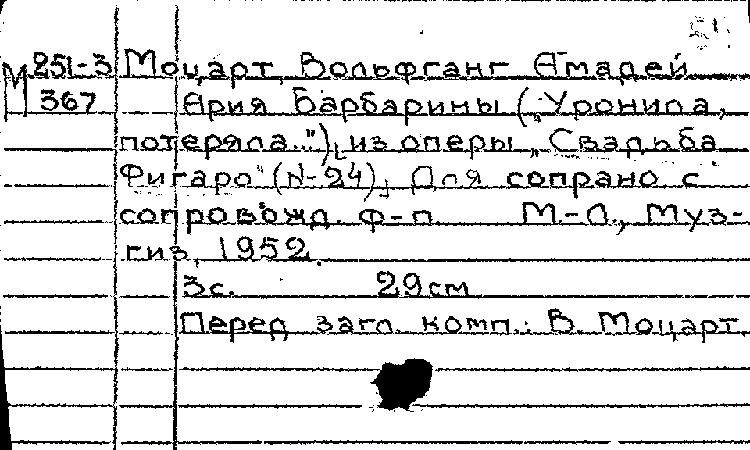 М 251-3 Моцарт, Вольфганг Амадей
367 Ария Барбарины („Уронила,
потеряла..."), из оперы „Свадьба
Фигаро" (N-24), Для сопрано с
сопровожд. ф-п. М.-Л., Муз-
гиз, 1952.
3с. 29см
Перед загл. комп.: В. Моцарт.